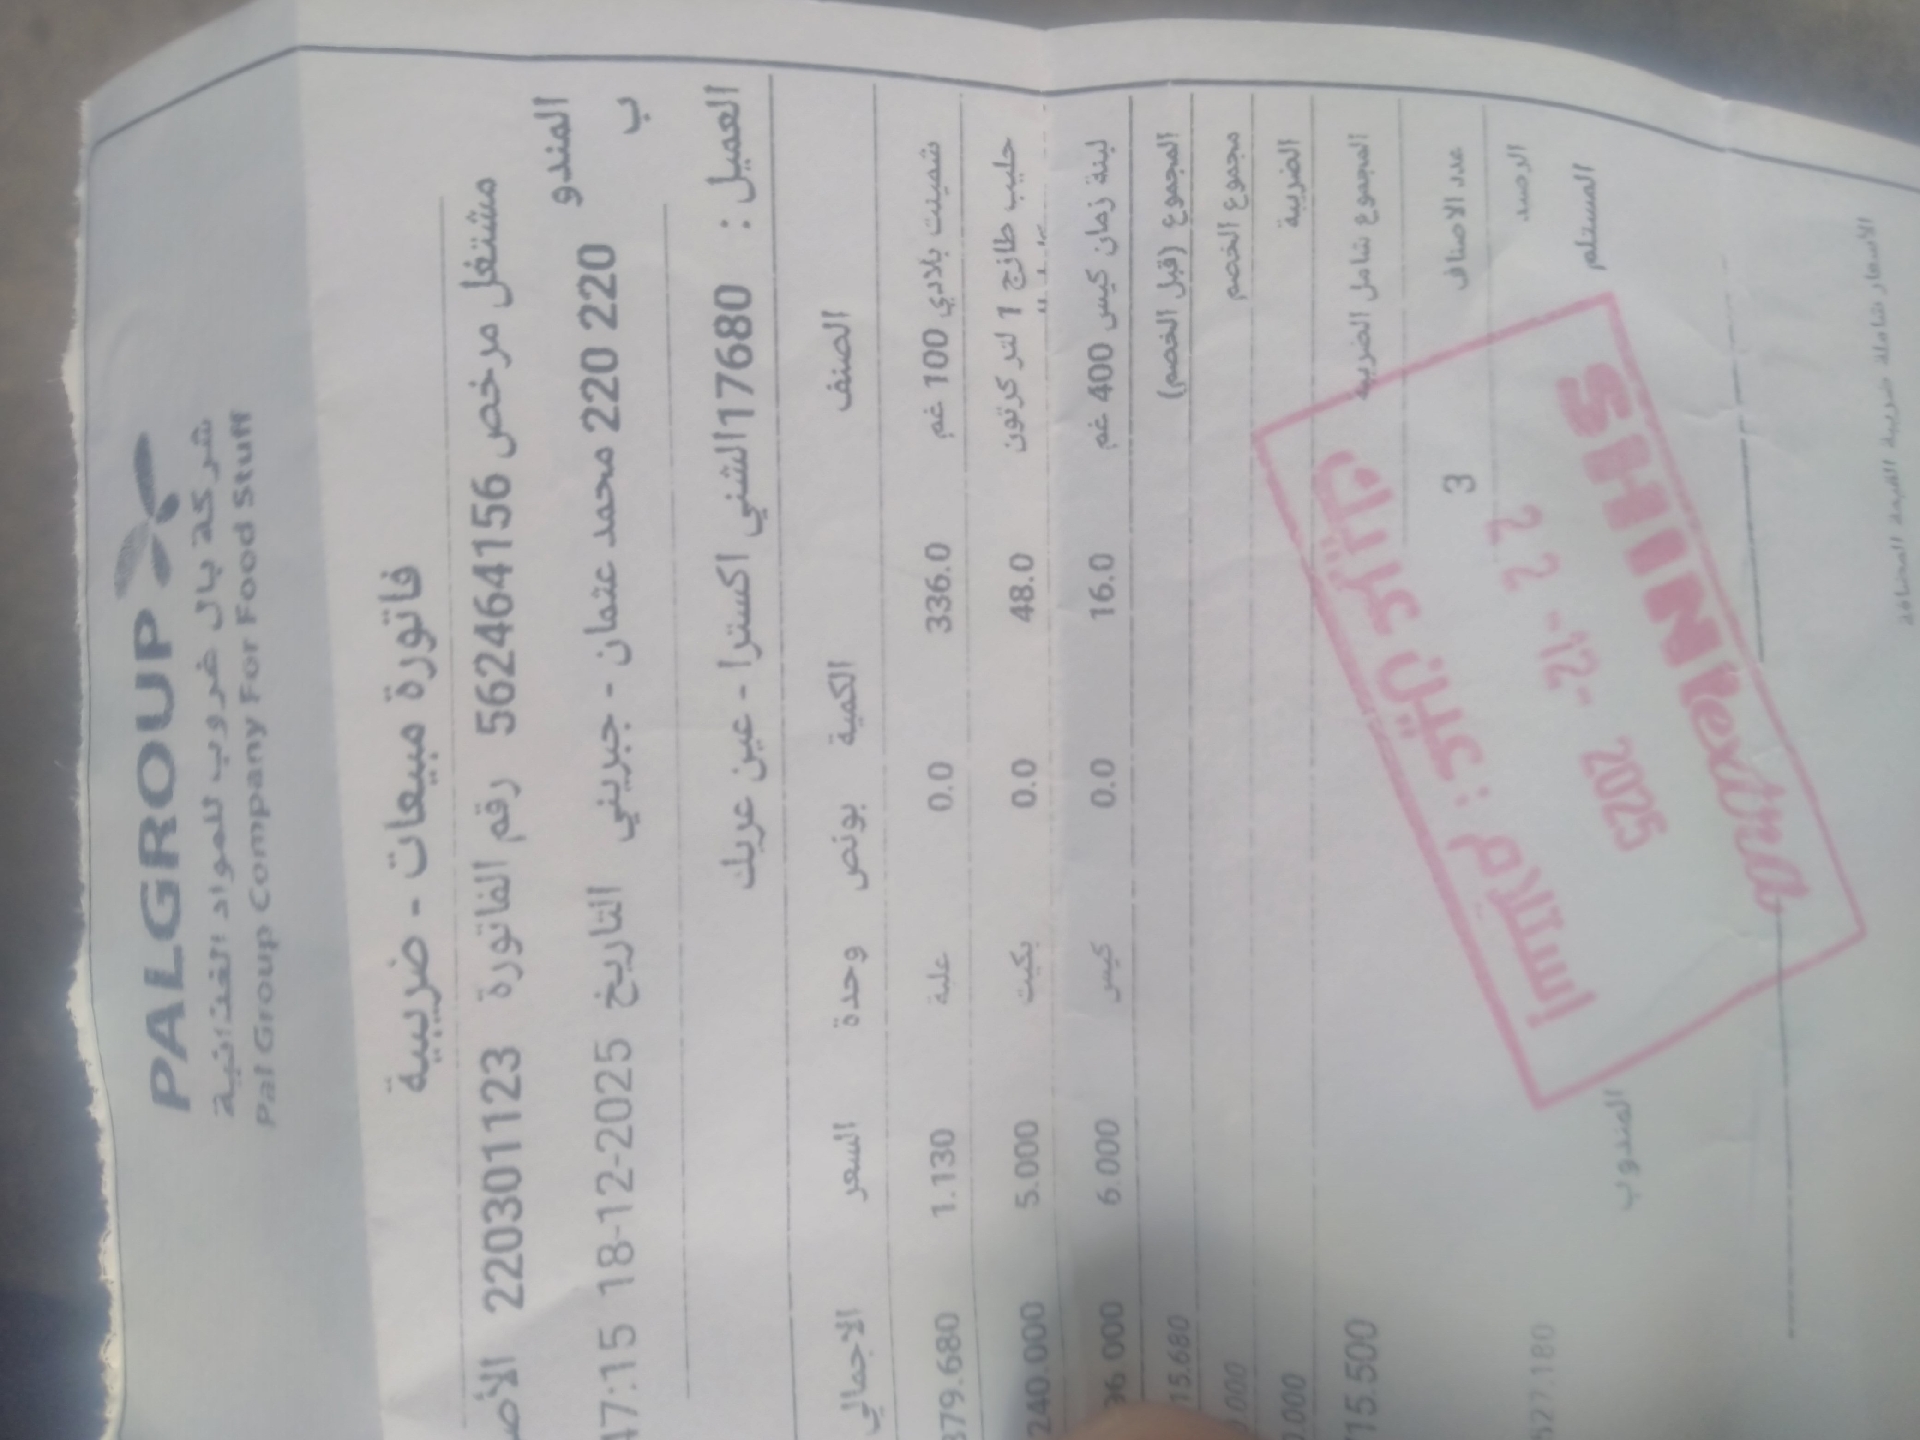 PALGROUP
شركة بال غروب للمواد الغذائية
Pal Group Company For Food Stuff
فاتورة مبيعات - ضريبية
مشتغل مرخص 562464156 رقم الفاتورة 220301123 الأص
المندو
ب 220 220 محمد عتمان - جبريني التاريخ 18-12-2025 47:15
العميل : 17680الشني اكسترا - عين عريك
الصنف الكمية بونص وحدة السعر الاجمالي
شمينت بلادي 100 غم 336.0 0.0 علبة 1.130 379.680
حليب طازج 1 لتر كرتون 48.0 0.0 بكيت 5.000 240.000
لبنة زمان كيس 400 غم 16.0 0.0 كيس 6.000 96.000
المجموع (قبل الخصم) 15.680
مجموع الخصم 0.000
الضريبة 0.000
المجموع شامل الضريبة 715.500
عدد الاصناف 3
الرصيد 527.180
المستلم المندوب
22 -12- 2025
SHINNI
extra
الاسعار شاملة ضريبة القيمة المضافة